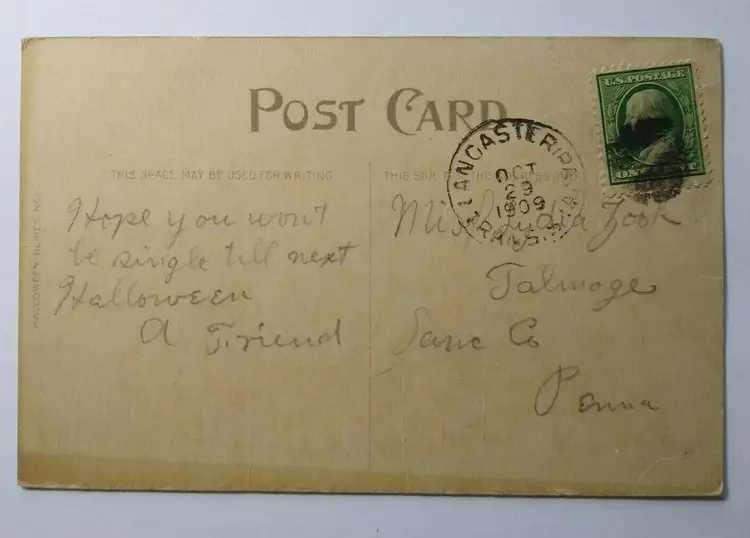 POST CARD
U.S. POSTAGE
LANCASTER, PA.
OCT
29
1909
THIS SPACE MAY BE USED FOR WRITING
THIS SIDE
HALLOWEEN SERIES NO.
Hope you won't
be single till next
Halloween
A Friend
Miss Lydia Zook
Talmage
Lanc Co
Penna